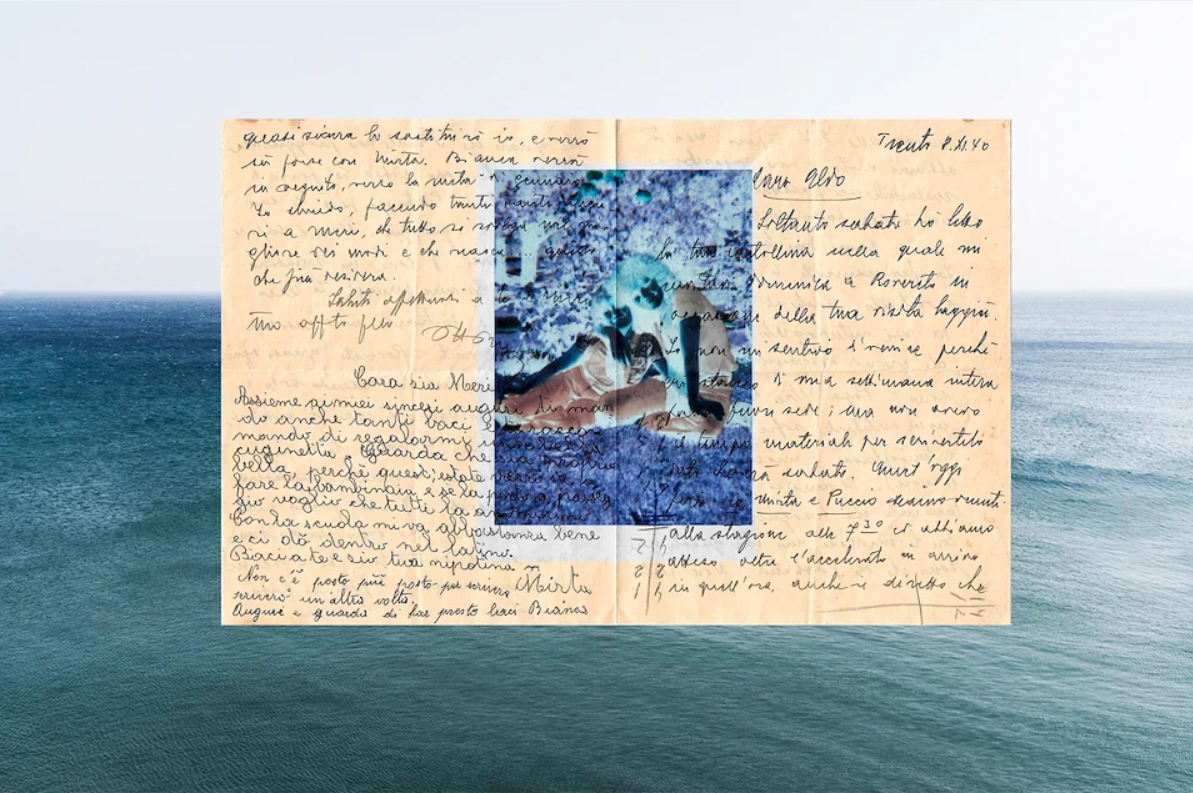 quasi sicura lo sostituirò io, e verrò
sù forse con Mirta. Bianca verrà
in seguito, verso la metà di gennaio.
Io chiudo, facendo tanti tanti auguri
ri a Meri, che tutto si svolga nel mi
gliore dei modi e che nasca ... quello
che più desidera.
Saluti affettuosi a te e Meri
tuo aff.to
Cara zia Meri
Assieme ai miei sinceri auguri ti man
do anche tanti baci e ti raccoman
mando di regalarmi una bella
cuginetta. Guarda che sia proprio
bella, perchè quest'estate verrò io a
fare la bambinaia e se la porto a passeg
gio voglio che tutti la ammirino.
Con la scuola mi va abbastanza bene
e ci dò dentro nel latino.
Bacia te e zio tua nipotina
Mirta
Non c'è più posto per scrivere
scriverò un'altra volta.
Auguri e guarda di far presto baci Bianca
Trento 8.XI.40
Caro Aldo
Soltanto sabato ho letto
la tua cartolina nella quale mi
Domenica a Rovereto in
occasione della tua visita laggiù.
Io non mi sentivo di venire perchè
ero stanco di una settimana intera
fuori sede; ma non avevo
il tempo materiale per
sabato. Quest'oggi
io Mirta e Puccio siamo venuti
alla stazione alle 7 30 ed abbiamo
atteso oltre l'accelerato in arrivo
in quell'ora, anche il diretto che